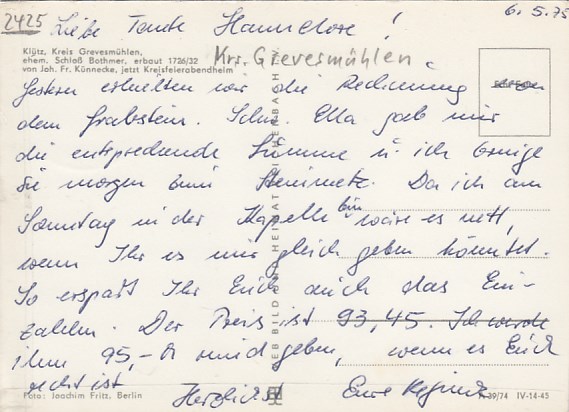 2425 Liebe Tante Hannelore! 6.5.75
Klütz, Kreis Grevesmühlen,
ehem. Schloß Bothmer, erbaut 1726/32
von Joh. Fr. Künnecke, jetzt Kreisfeierabendheim
Krs. Grevesmühlen
Gestern erhielten wir die Rechnung
dem Grabstein. Schw. Ella gab mir
die entsprechende Summe u. ich bringe
sie morgen zum Steinmetz. Da ich am
Sonntag in der Kapelle bin wäre es nett,
wenn Ihr es mir gleich geben könntet.
So erspart Ihr Euch auch das Ein-
zahlen. Der Preis ist 93,45. Ich werde
ihm 95,- M rund geben, wenn es Euch
recht ist
Herzlichst Eure
BILD HEIMAT
Foto: Joachim Fritz, Berlin
39/74 IV-14-45